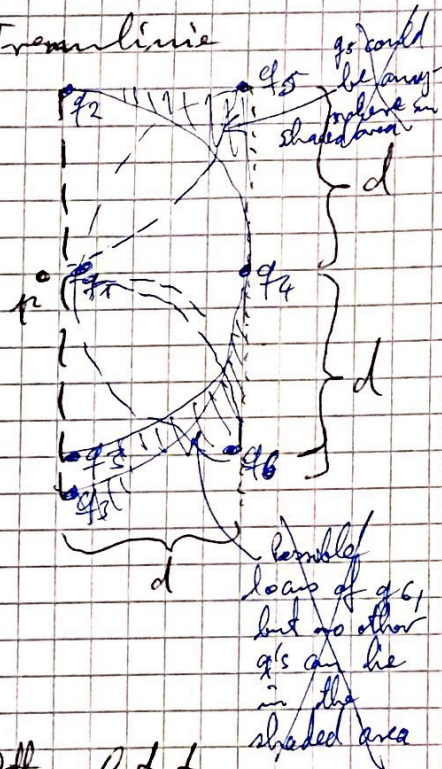 Trennlinie
q5 could
be any-
where in
shaded area
q2
q5
d
p
q1
q4
d
q3
q3
q6
d
Possible
locus of q6,
but no other
q's can lie
in the
shaded area